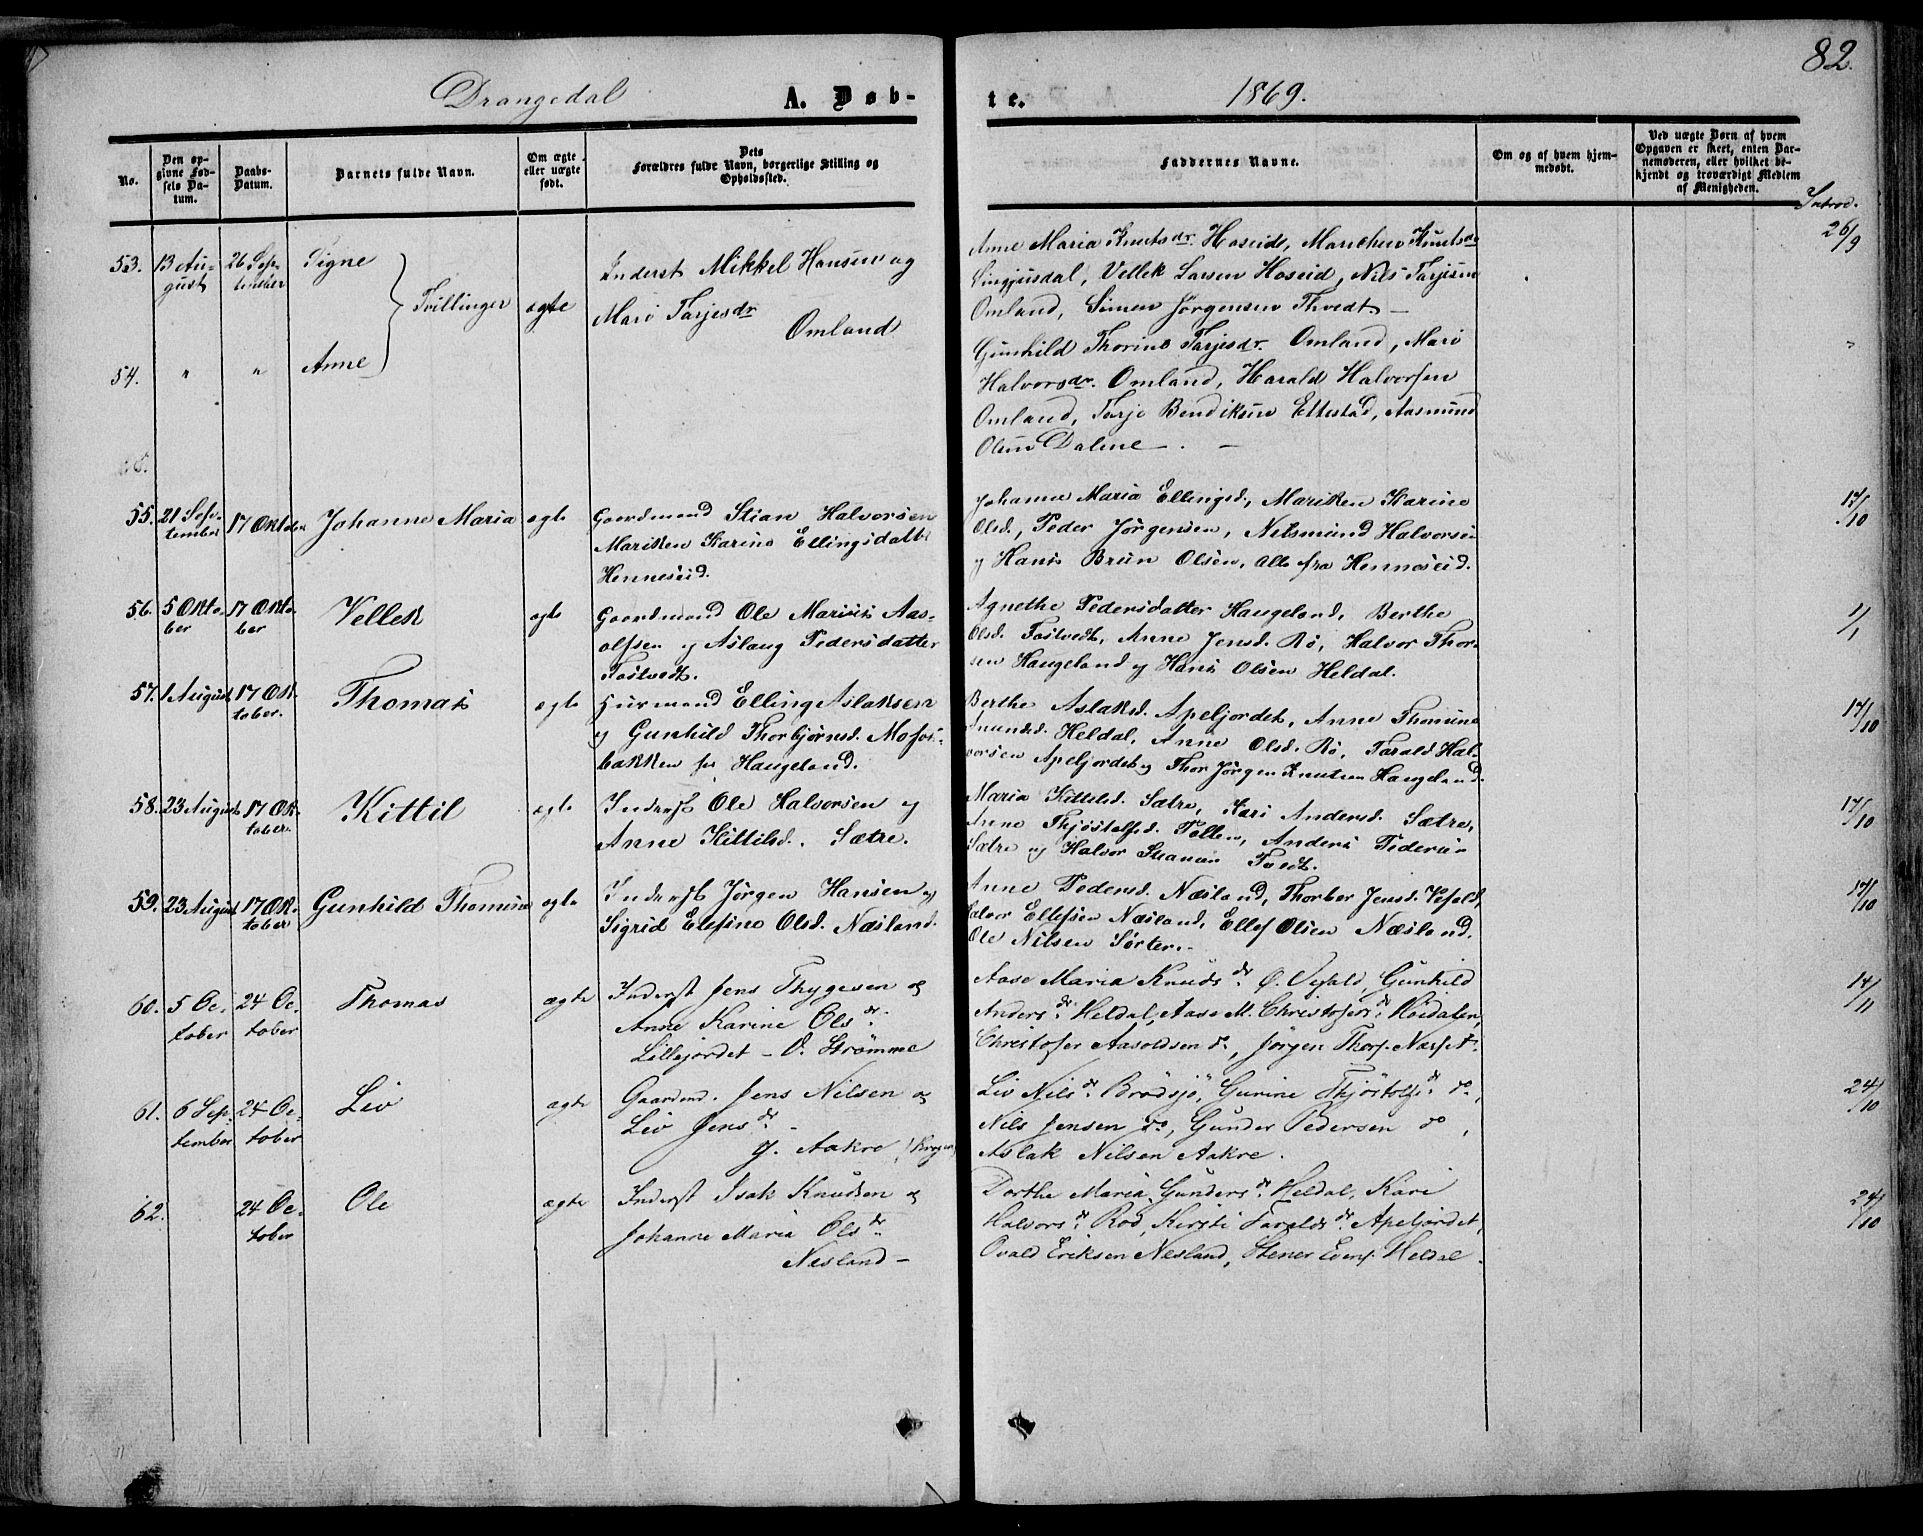 82.
Drangedal A. Døb-
te. 1869.
No.
Den op-
givne Fød-
sels Da-
tum.
Daabs-
Datum.
Barnets fulde Navn.
Om ægte
eller uægte
født.
Dets
Forældres fulde Navn, borgerlige Stilling og
Opholdssted.
Faddernes Navne.
Om og af hvem hjem-
medøbt.
Ved uægte Børn af hvem
Opgaven er skeet, enten Bar-
nemoderen, eller hvilket be-
kjendt og troværdigt Medlem
af Menigheden.
Introd.
53. 13 Au-
gust
26 Sep-
tember
Signe
Tvillinger
ægte
Inderst Mikkel Hansen og
Mari Tarjesdr
Omland
Anne Maria Knutsdr. Hoseid, Knutsdr
Vellek Larsen Hoseid, Nils Tarjesen
Omland, Simen Jørgensen Thvedt -
26/9
54. " " Anne
Gunhild Thorine Tarjesdr. Omland, Mari
Halvorsdr. Omland, Harald Halvorsen
Omland, Tarje Bendiksen Ettestad, Aasmund
Olsen Dalene - . -
"
55. 21 Sep-
tember
17 Oktober
Johanne Maria
ægte
Gaardmand Stian Halvorsen
Mariken Karine Ellingsdatter
Henneseid.
Johanne Maria Ellingsd., Mariken Karine
Olsd., Peder Jørgensen, Nilsmund Halvorsen
og Hans Brun Olsen, alle fra Henneseid.
17/10
56. 5 Okto-
ber
17 Okto-
ber
Vellek
ægte
Gaardmand Ole Marius Aas-
olfsen og Aslaug Pedersdatter
Tostvedt.
Agnethe Pedersdatter Haugeland, Berthe
Olsd. Tostvedt, Anne Jensd. Rø, Halvor Thor-
sen Haugeland og Hans Olsen Heldal.
1/1
57. 1 August
17 Ok-
tober.
Thomas
ægte
Huusmand Elling Aslaksen
og Gunhild Thorbjørnsd.
bakken Haugeland.
Berthe Aslaksd. Apeljordet, Anne Thomine
Heldal, Anne Olsd. Rø, Tarald Hal-
vorsen Apeljordet og Thor Jørgen Knutsen Haugeland.
17/10
58. 23 August
17 Ok-
tober.
Kittil
ægte
Inderst Ole Halvorsen og
Anne Kittilsd. Sætre.
Maria Kittilsd. Sætre, Kari Andersd. Sætre,
Anne Thjøstolfsd. Anders Pedersen
Sætre og Halvor
17/10
59. 23 August
17 Ok-
tober
Gunhild Thomine
ægte
Inderst Jørgen Hansen og
Sigrid Elefine Olsd. Næsland.
Anne Pedersd. Næsland, Thorber Jensd. Vefald,
Halvor Ellefsen Næsland, Ellef Olsen Næsland,
Ole Nilsen
17/10
60. 5 Oc-
tober
24 Oc-
tober
Thomas
ægte
Inderst Jens Thygesen og
Anne Karine Olsdr.
Lillejordet - Ø. Strømme
Aase Maria Knudsdr. Ø. Vefald, Gunhild
Andersdr. Heldal, Aase M. Christofersdr. Heidalen,
Christofer Aasoldsen do, Jørgen Thors.
14/11
61. 6 Sep-
tember
24 Oc-
tober
Liv
ægte
Gaardmd. Jens Nilsen og
Liv Jensdr. -
J. Aakre
Liv Nilsdr. Brødsjø, Gurine Thjøstolfsdr. do,
Nils Jensen do, Gunder Pedersen do,
Aslak Nilsen Aakre.
24/10
62.
24 Oc-
tober
Ole
ægte
Inderst Isak Knudsen og
Johanne Maria Olsdr.
Næsland -
Dorthe Maria Gundersdr. Heldal, Kari
Halvorsdr. Rød, Kirsti Taraldsdr. Apeljordet,
Ovald Eriksen Næsland, Stener Evens. Heldal.
24/10